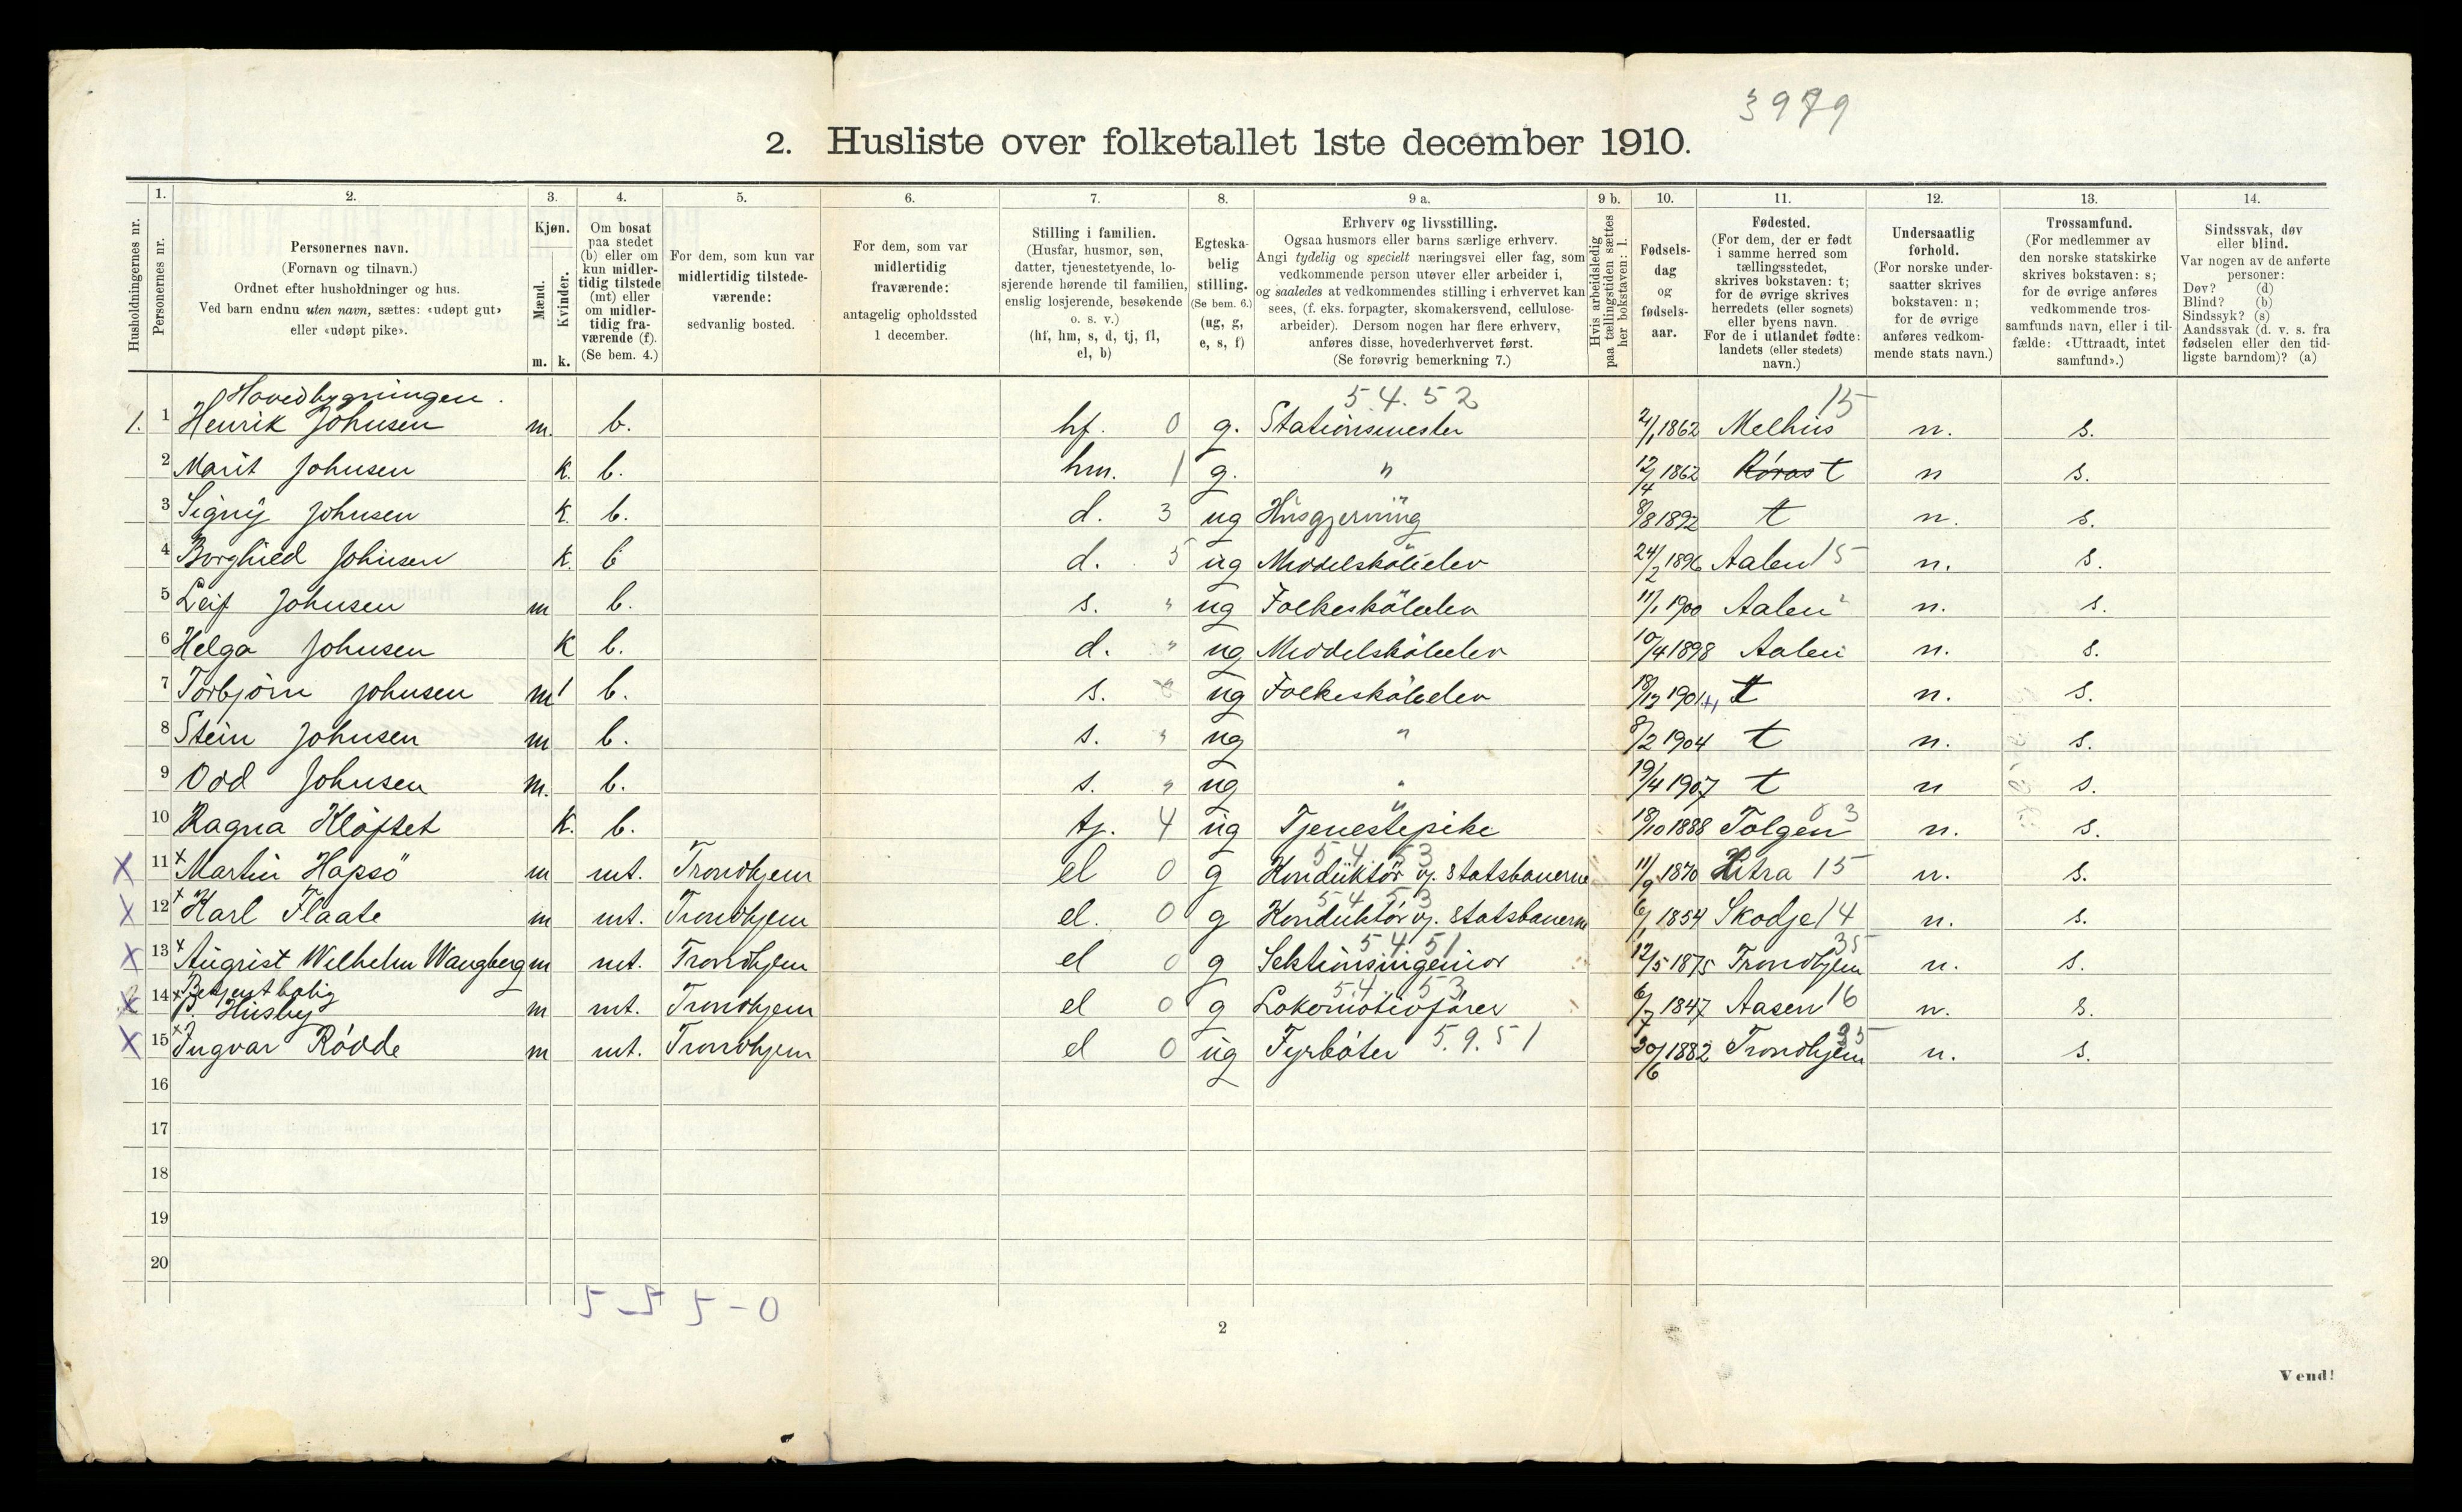 3979
2. Husliste over folketallet 1ste december 1910.
Husholdningernes nr.
1.
Personernes nr.
2.
Personernes navn.
(Fornavn og tilnavn.)
Ordnet efter husholdninger og hus.
Ved barn endnu uten navn, sættes: «udøpt gut»
eller «udøpt pike».
3.
Kjøn.
Mænd.
Kvinder.
m. k.
4.
Om bosat
paa stedet
(b) eller om
kun midler-
tidig tilstede
(mt) eller
om midler-
tidig fra-
værende (f).
(Se bem. 4.)
5.
For dem, som kun var
midlertidig tilstede-
værende:
sedvanlig bosted.
6.
For dem, som var
midlertidig
fraværende:
antagelig opholdssted
1 december.
7.
Stilling i familien.
(Husfar, husmor, søn,
datter, tjenestetyende, lo-
sjerende hørende til familien,
enslig losjerende, besøkende
o. s. v.)
(hf, hm, s, d, tj, fl,
el, b)
8.
Egteska-
belig
stilling.
(Se bem. 6.)
(ug, g,
e, s, f)
9 a.
Erhverv og livsstilling.
Ogsaa husmors eller barns særlige erhverv.
Angi tydelig og specielt næringsvei eller fag, som
vedkommende person utøver eller arbeider i,
og saaledes at vedkommendes stilling i erhvervet kan
sees, (f. eks. forpagter, skomakersvend, cellulose-
arbeider). Dersom nogen har flere erhverv,
anføres disse, hovederhvervet først.
(Se forøvrig bemerkning 7.)
9 b.
Hvis arbeidsledig
paa tællingstiden sættes
her bokstaven: l.
10.
Fødsels-
dag
og
fødsels-
aar.
11.
Fødested.
(For dem, der er født
i samme herred som
tællingsstedet,
skrives bokstaven: t;
for de øvrige skrives
herredets (eller sognets)
eller byens navn.
For de i utlandet fødte:
landets (eller stedets)
navn.)
12.
Undersaatlig
forhold.
(For norske under-
saatter skrives
bokstaven: n;
for de øvrige
anføres vedkom-
mende stats navn.)
13.
Trossamfund.
(For medlemmer av
den norske statskirke
skrives bokstaven: s;
for de øvrige anføres
vedkommende tros-
samfunds navn, eller i til-
fælde: «Uttraadt, intet
samfund».)
14.
Sindssvak, døv
eller blind.
Var nogen av de anførte
personer:
Døv? (d)
Blind? (b)
Sindssyk? (s)
Aandssvak (d. v. s. fra
fødselen eller den tid-
ligste barndom)? (a)
Hovedbygningen. 5.4.52 15
1. 1 Henrik Johnsen m. b. hf. 0 g. Stationsmester 2/1 1862 Melhus n. s.
2 Marit Johnsen k. b. hm. 1 g. " 12/4 1862 Röros t n s.
3 Signy Johnsen k. b. d. 3 ug Husgjerning 8/8 1892 t n. s.
4 Borghild Johnsen k. b d. 5 ug Middelskoleelev 24/2 1896 Aalen 15 n. s.
5 Leif Johnsen m b. s. " ug Folkeskoleelev 11/1 1900 Aalen n. s.
6 Helga Johnsen k b. d. " ug Middelskoleelev 10/4 1898 Aalen n. s.
7 Torbjörn Johnsen m b. s. ug Folkeskoleelev 18/12 1901 t n. s.
8 Stein Johnsen m b. s. " ug " 8/2 1904 t n. s.
9 Odd Johnsen m. b. s. " ug " 19/4 1907 t n s.
10 Ragna Kløftet k. b. tj. 4 ug Tjenestepike 18/10 1888 Tolgen 03 n. s.
x 11 x Martin Hopsö m mt. Trondhjem el 0 g Konduktör v. Statsbanerne 54 53 11/9 1870 Hitra 15 n. s.
x 12 x Karl Flaate m mt. Trondhjem el. 0 g Konduktör v. Statsbanerne 54 53 6/1 1854 Skodje 14 n. s.
x 13 x August Wilhelm Wangberg m mt. Trondhjem el 0 g Sektionsingeniør 5 4 51 12/5 1875 Trondhjem 35 n. s.
Betjentbolig
2 x 14 x P. Husby m mt. Trondhjem el 0 g Lokomotivfører 54 53 6/7 1847 Aasen 16 n. s.
x 15 x Ingvar Rödde m mt. Trondhjem el 0 ug Fyrböter 5.9.51 30/6 1882 Trondhjem 35 n. s.
16
17
18
19
20
5-5 5-0
2
Vend!